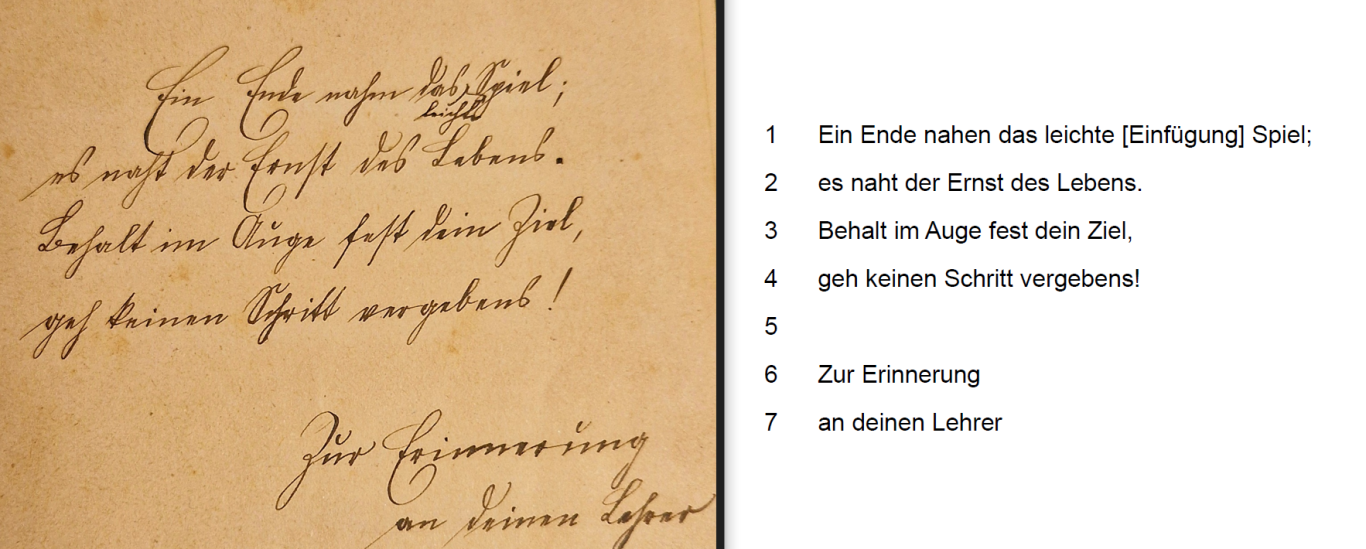 Ein Ende nahm das Spiel;
leichte
es naht der Ernst des Lebens.
Behalt im Auge fest dein Ziel,
geh keinen Schritt vergebens!
Zur Erinnerung
an deinen Lehrer
1 Ein Ende nahen das leichte [Einfügung] Spiel;
2 es naht der Ernst des Lebens.
3 Behalt im Auge fest dein Ziel,
4 geh keinen Schritt vergebens!
5
6 Zur Erinnerung
7 an deinen Lehrer